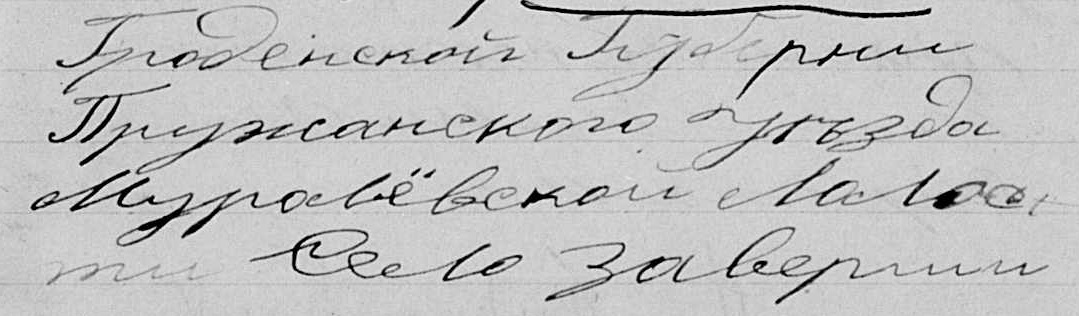 Гроденской Губернии
Пружанского уѣзда
Муравёвской Лолос
ти Село заверши